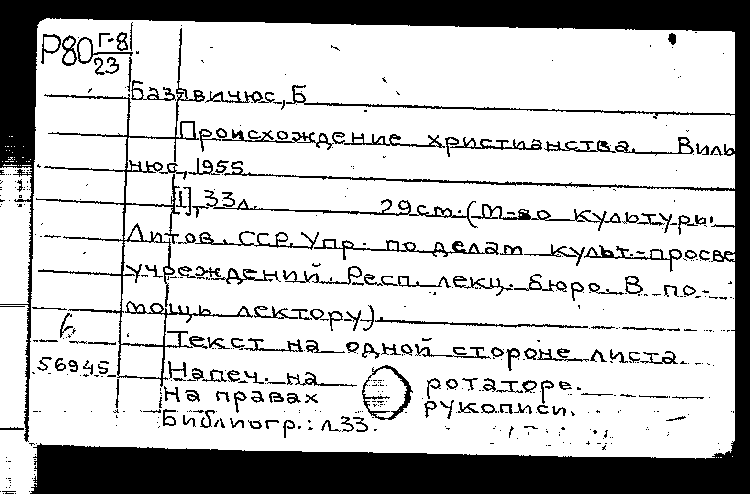 Р80 Г-8
23
Базявичюс, Б
Происхождение христианства. Виль
нюс, 1955
[1], 33л. 29см. (М-во культуры
Литов. ССР. Упр. по делам культ-просве
учреждений. Респ. лекц. бюро. В по-
мощь лектору).
6
Текст на одной стороне листа.
56945
Напеч. на ротаторе.
На правах рукописи.
Библиогр.: л.33.